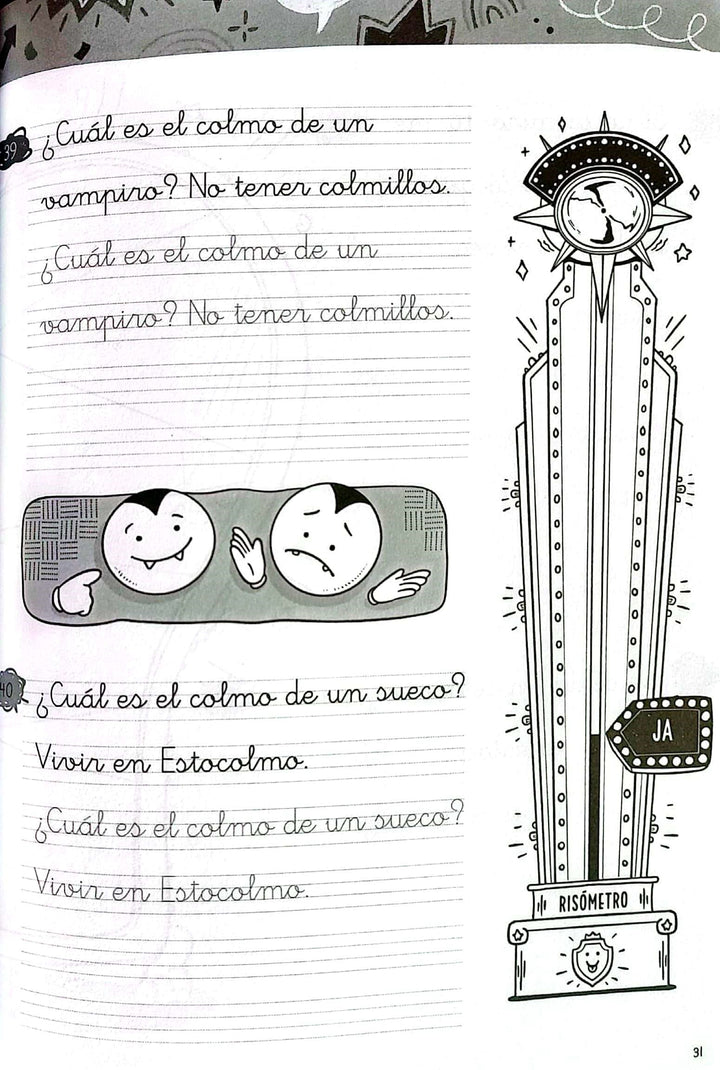 39
¿Cuál es el colmo de un
vampiro? No tener colmillos.
¿Cuál es el colmo de un
vampiro? No tener colmillos.
40
¿Cuál es el colmo de un sueco?
Vivir en Estocolmo.
¿Cuál es el colmo de un sueco?
Vivir en Estocolmo.
JA
RISÓMETRO
31